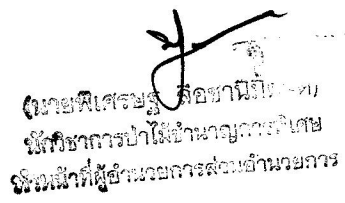 (นายพิเศรษฐ
นักวิชาการป่าไม้ชำนาญการพิเศษ
ทำหน้าที่ผู้อำนวยการส่วนอำนวยการ